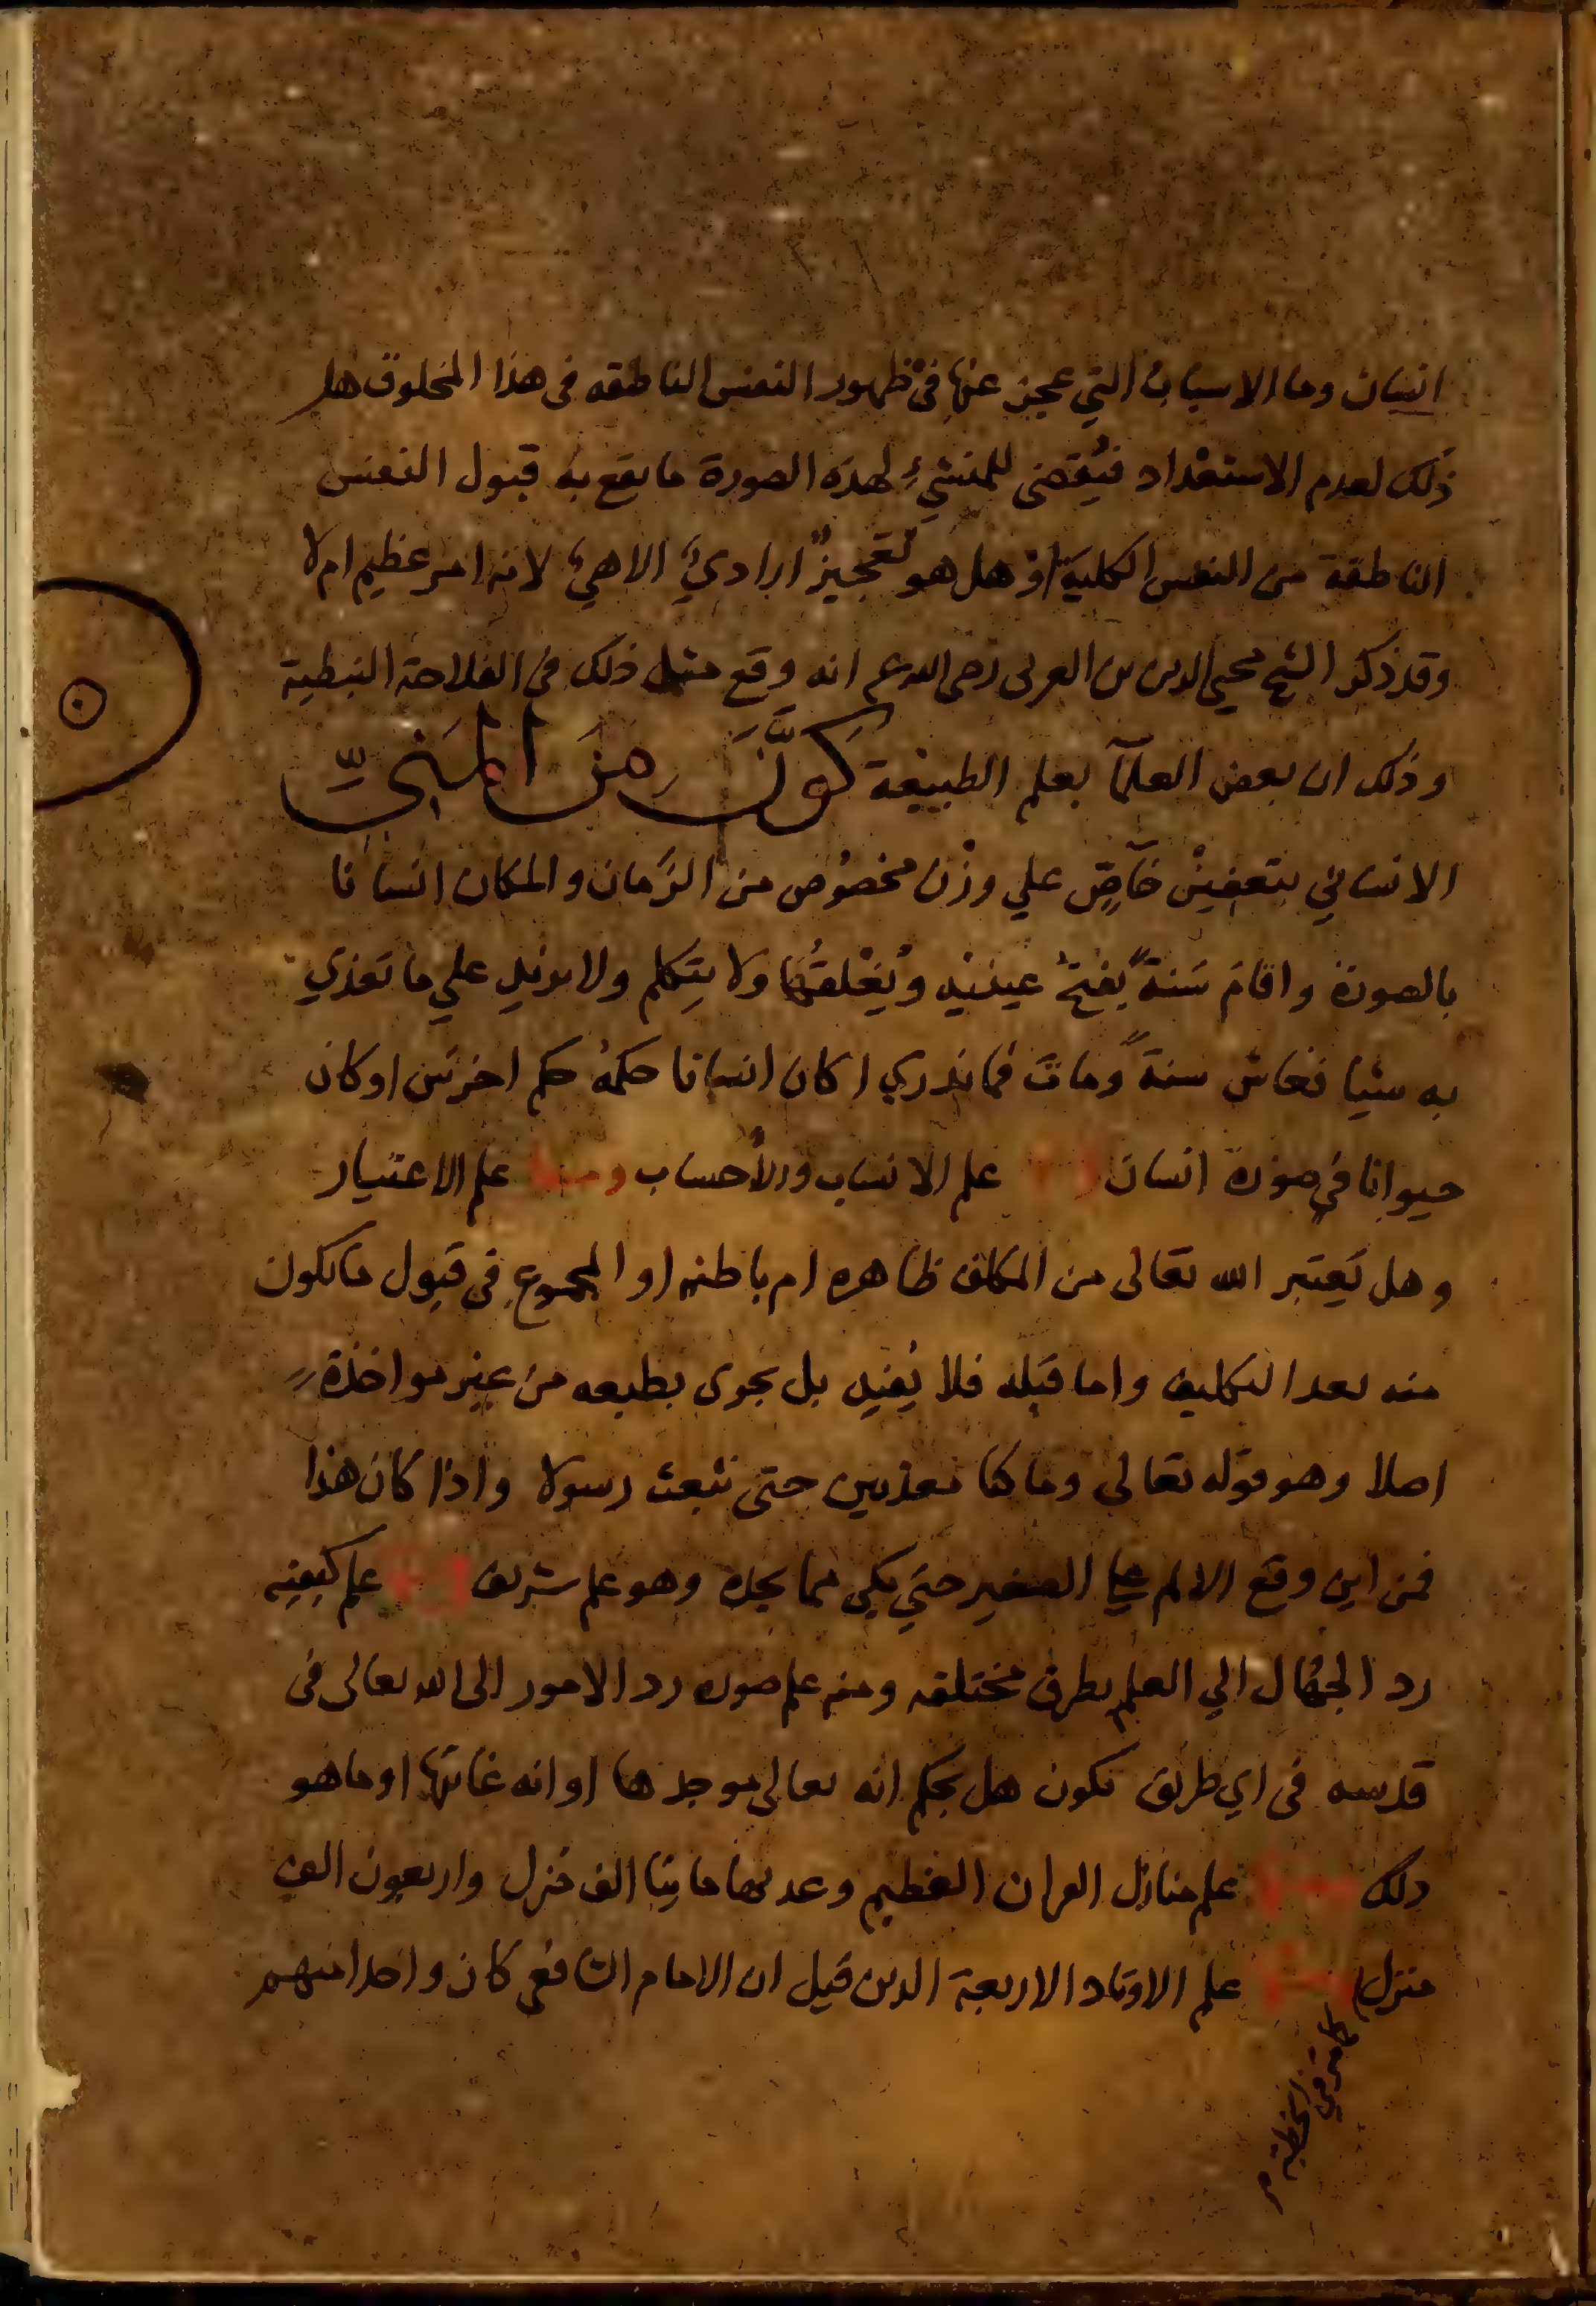 انسان وما الاسباب التي عجز عنها في ظهور النفس الناطقه في هذا المخلوق هل
ذلك لعدم الاستعداد فيقضى للمنشئ لهذه الصورة ما يقع به قبول النفس
الناطقة من النفس الكلية او هل هو تعجيزٌ ارادي الاهي لانه امر عظيم ام لا
وقد ذكر الشيخ محيي الدين بن العربى رضى الله عنه انه وقع مثل ذلك فى الفلاحة النبطية
وذلك ان بعض العلمآ بعلم الطبيعة كَوَّنَ مِنَ المَنيِّ
الانساني بتعفينٍ خاصٍّ علي وزن مخصُوص من الزمان والمكان انسانا
بالصورة واقام سَنةً يفتحُ عينيه ويُغلقُها ولا يتكلم ولا يزيد علي ما تغذي
به شيا فعاش سنةً وماتَ فما ندري اكان انسانا حكمهُ حكم اخرس او كان
حيوانا في صورة انسان علم الانساب والأحساب ومنها علم الاعتبار
وهل يَعتبر الله تعالى من المكلف ظاهره ام باطنه او المجموع فى قبول ما يكون
منه بعد التكليف واما قبله فلا يُفيد بل يجرى بطبعه من غير مواخذة
اصلا وهو قوله تعالى وما كنا معذبين حتى نبعث رسولا واذا كان هذا
فمن اين وقع الالم علي الصغير حتي يبكى مما يجده وهو علم شريف علم كيفيه
رد الجهال الي العلم بطرق مختلفه ومنه علم صوره رد الامور الى الله تعالى فى
قدسه فى اي طريق تكون هل بحكم انه تعالى موجدها او انه غايتها او ما هو
ذلك علم منازل القران العظيم وعدتها مايتا الف منزل واربعون الف
منزل علم الاوتاد الاربعة الذين قيل ان الامام الشافعي كان واحدا منهم
كما مر في الخطبة